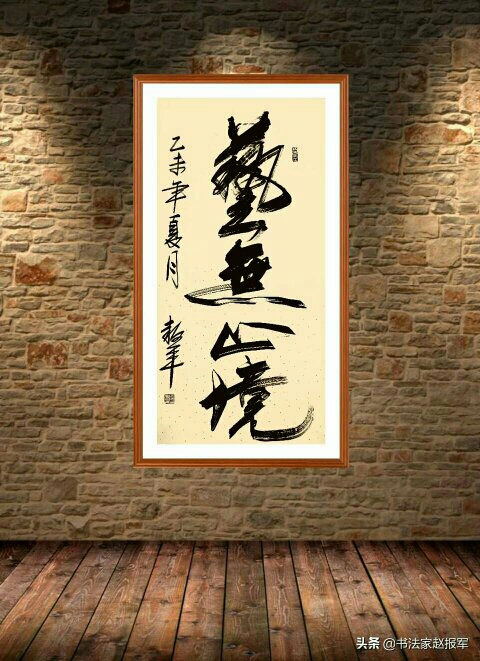 藝無止境
乙未年夏月
头条 @书法家赵报军